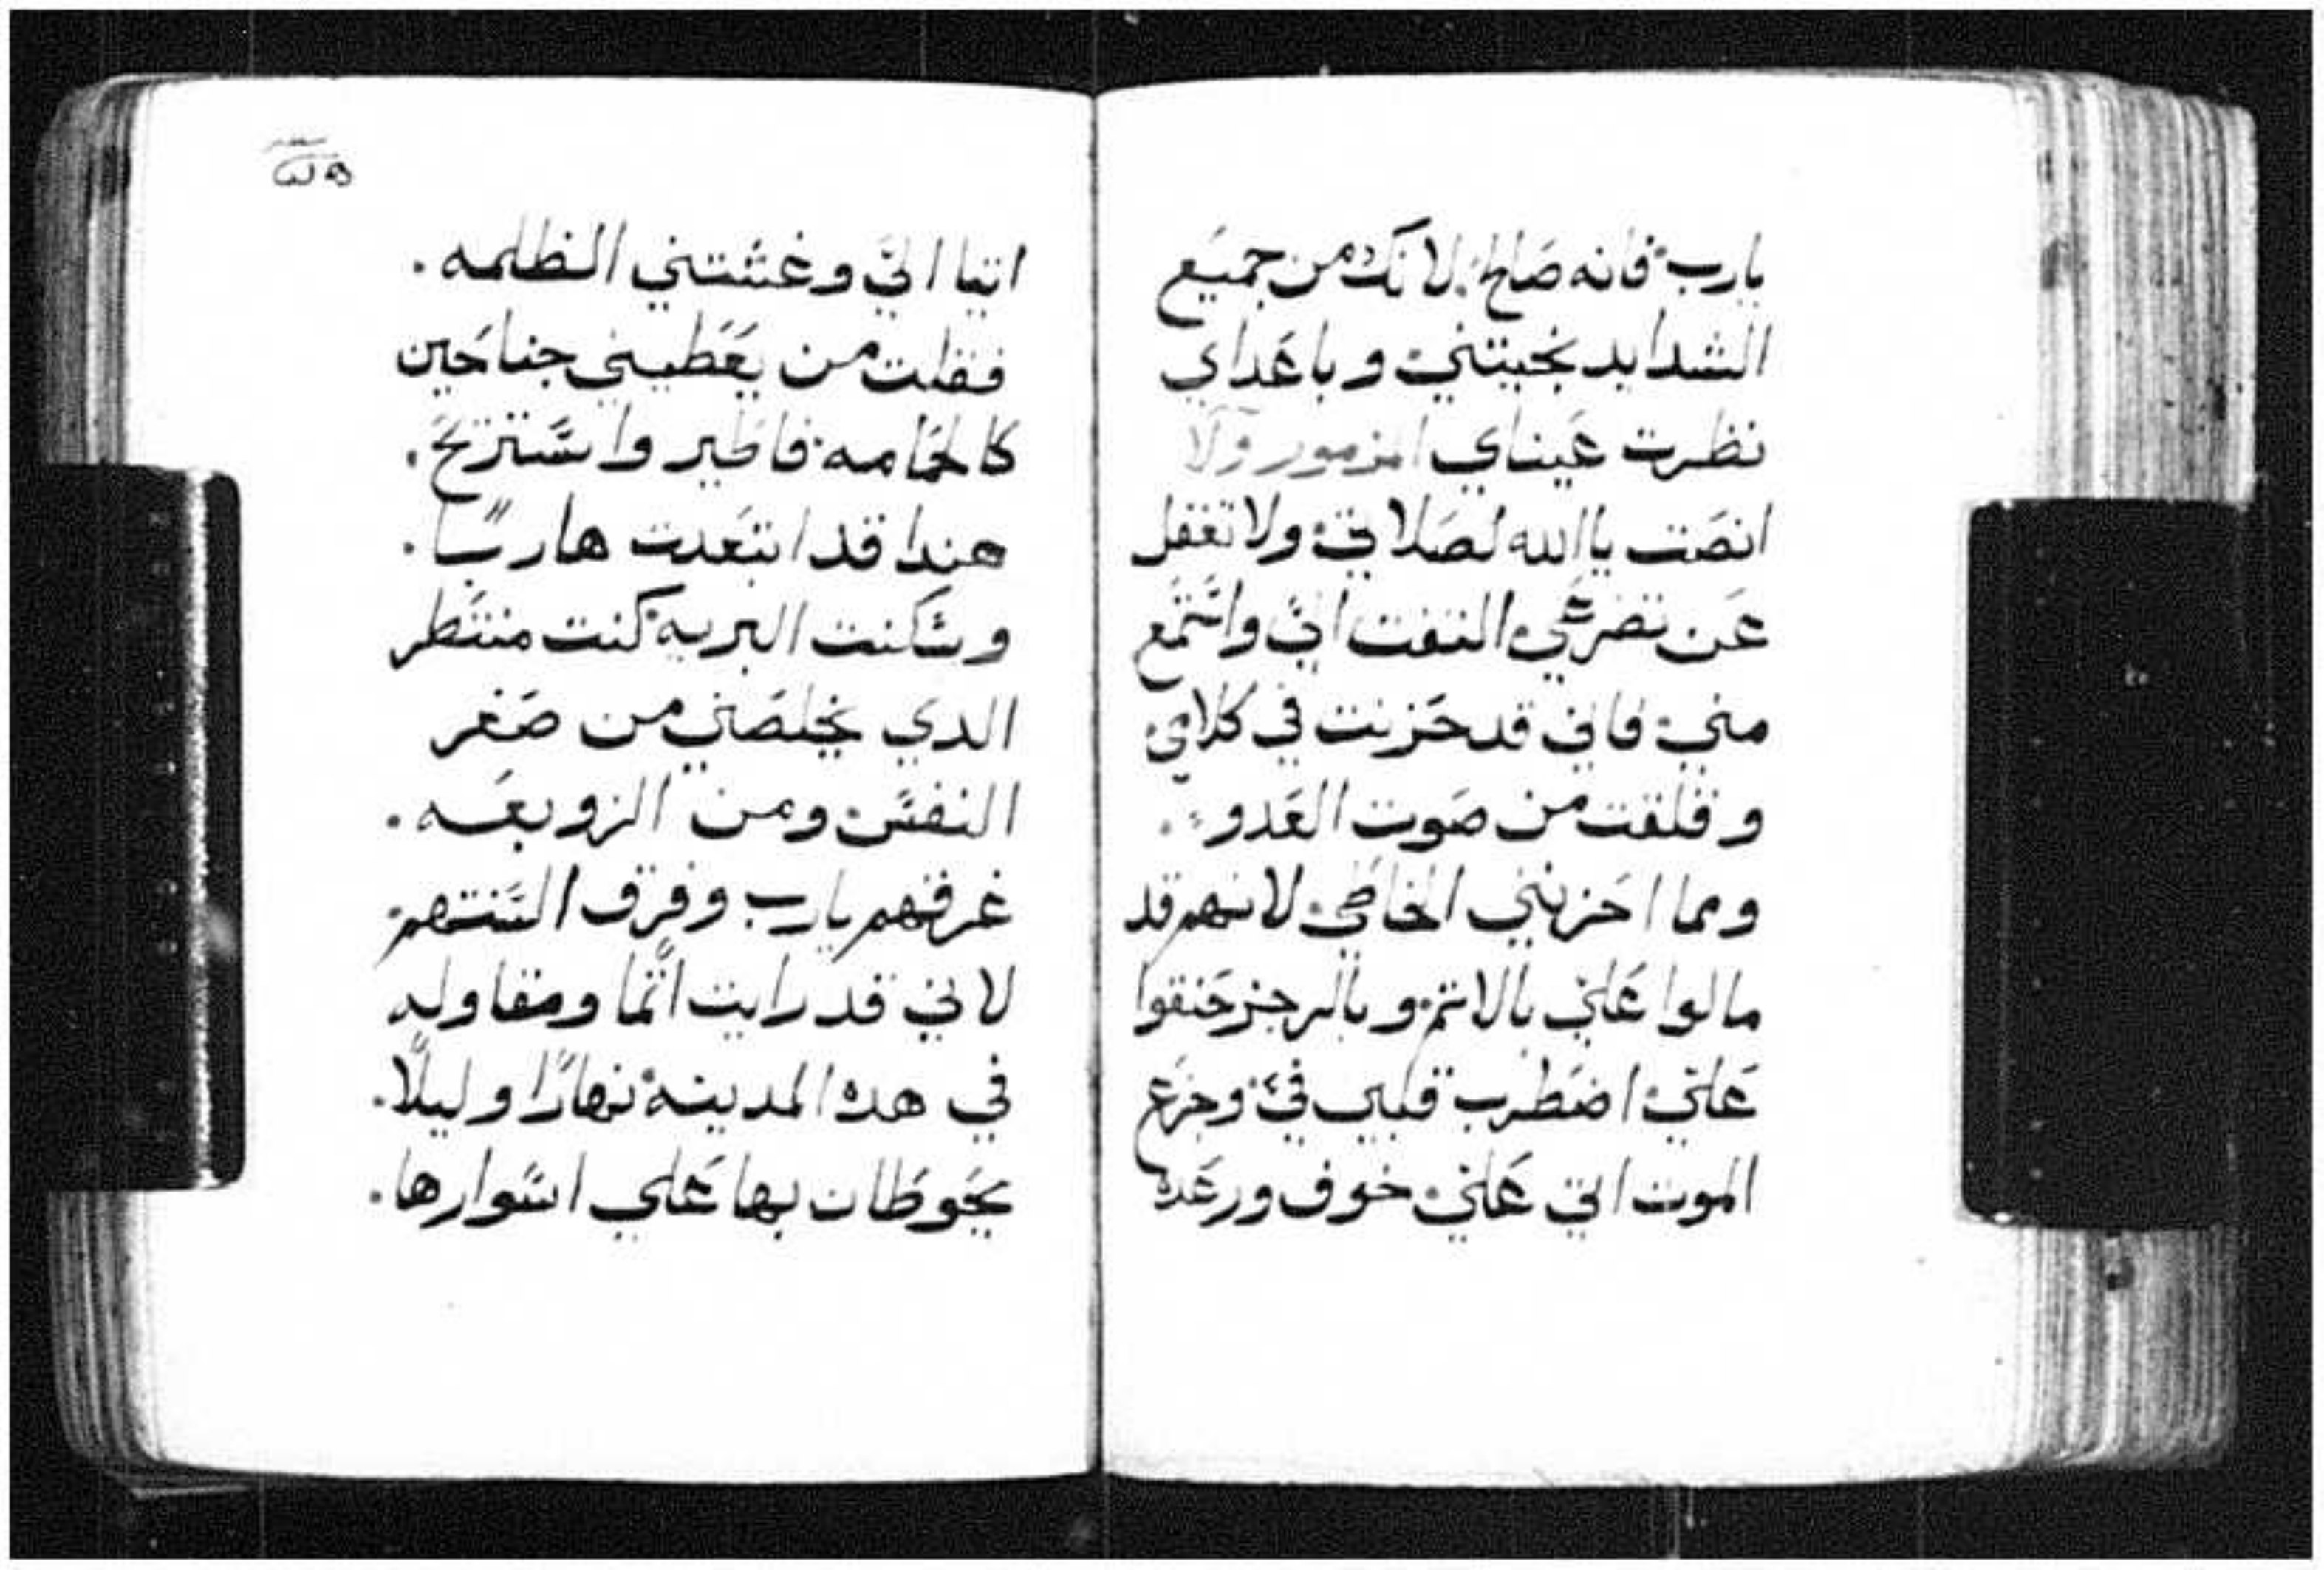 يارب فانه صالح: لانك من جميع
الشدايد نجيتني وباعداي
نظرت عيناي المزمور
انصت ياالله لصلاتي ولا تغفل
عن تضرعي التفت الي واستمع
مني فاني قد حزنت في كلامي
وقلقت من صوت العدو .
ومما احزنني الخاطي لانهم قد
مالوا علي بالاثم وبالرجز حنقوا
علي اضطرب قلبي في وجزع
الموت اتي علي خوف ورعده
اتيا الي وغشتني الظلمه .
فقلت من يعطيني جناحين
كالحمامه فاطير واستريح .
هندا قد ابتعدت هاربًا .
وسكنت البريه كنت منتظر
الدي يخلصني من صغر
النفس ومن الزوبعه .
غرقهم يارب وفرق السنتهم
لاني قد رايت اثمًا ومقاوله
في هده المدينه نهارًا وليلًا .
يحوطان بها علي اسوارها .